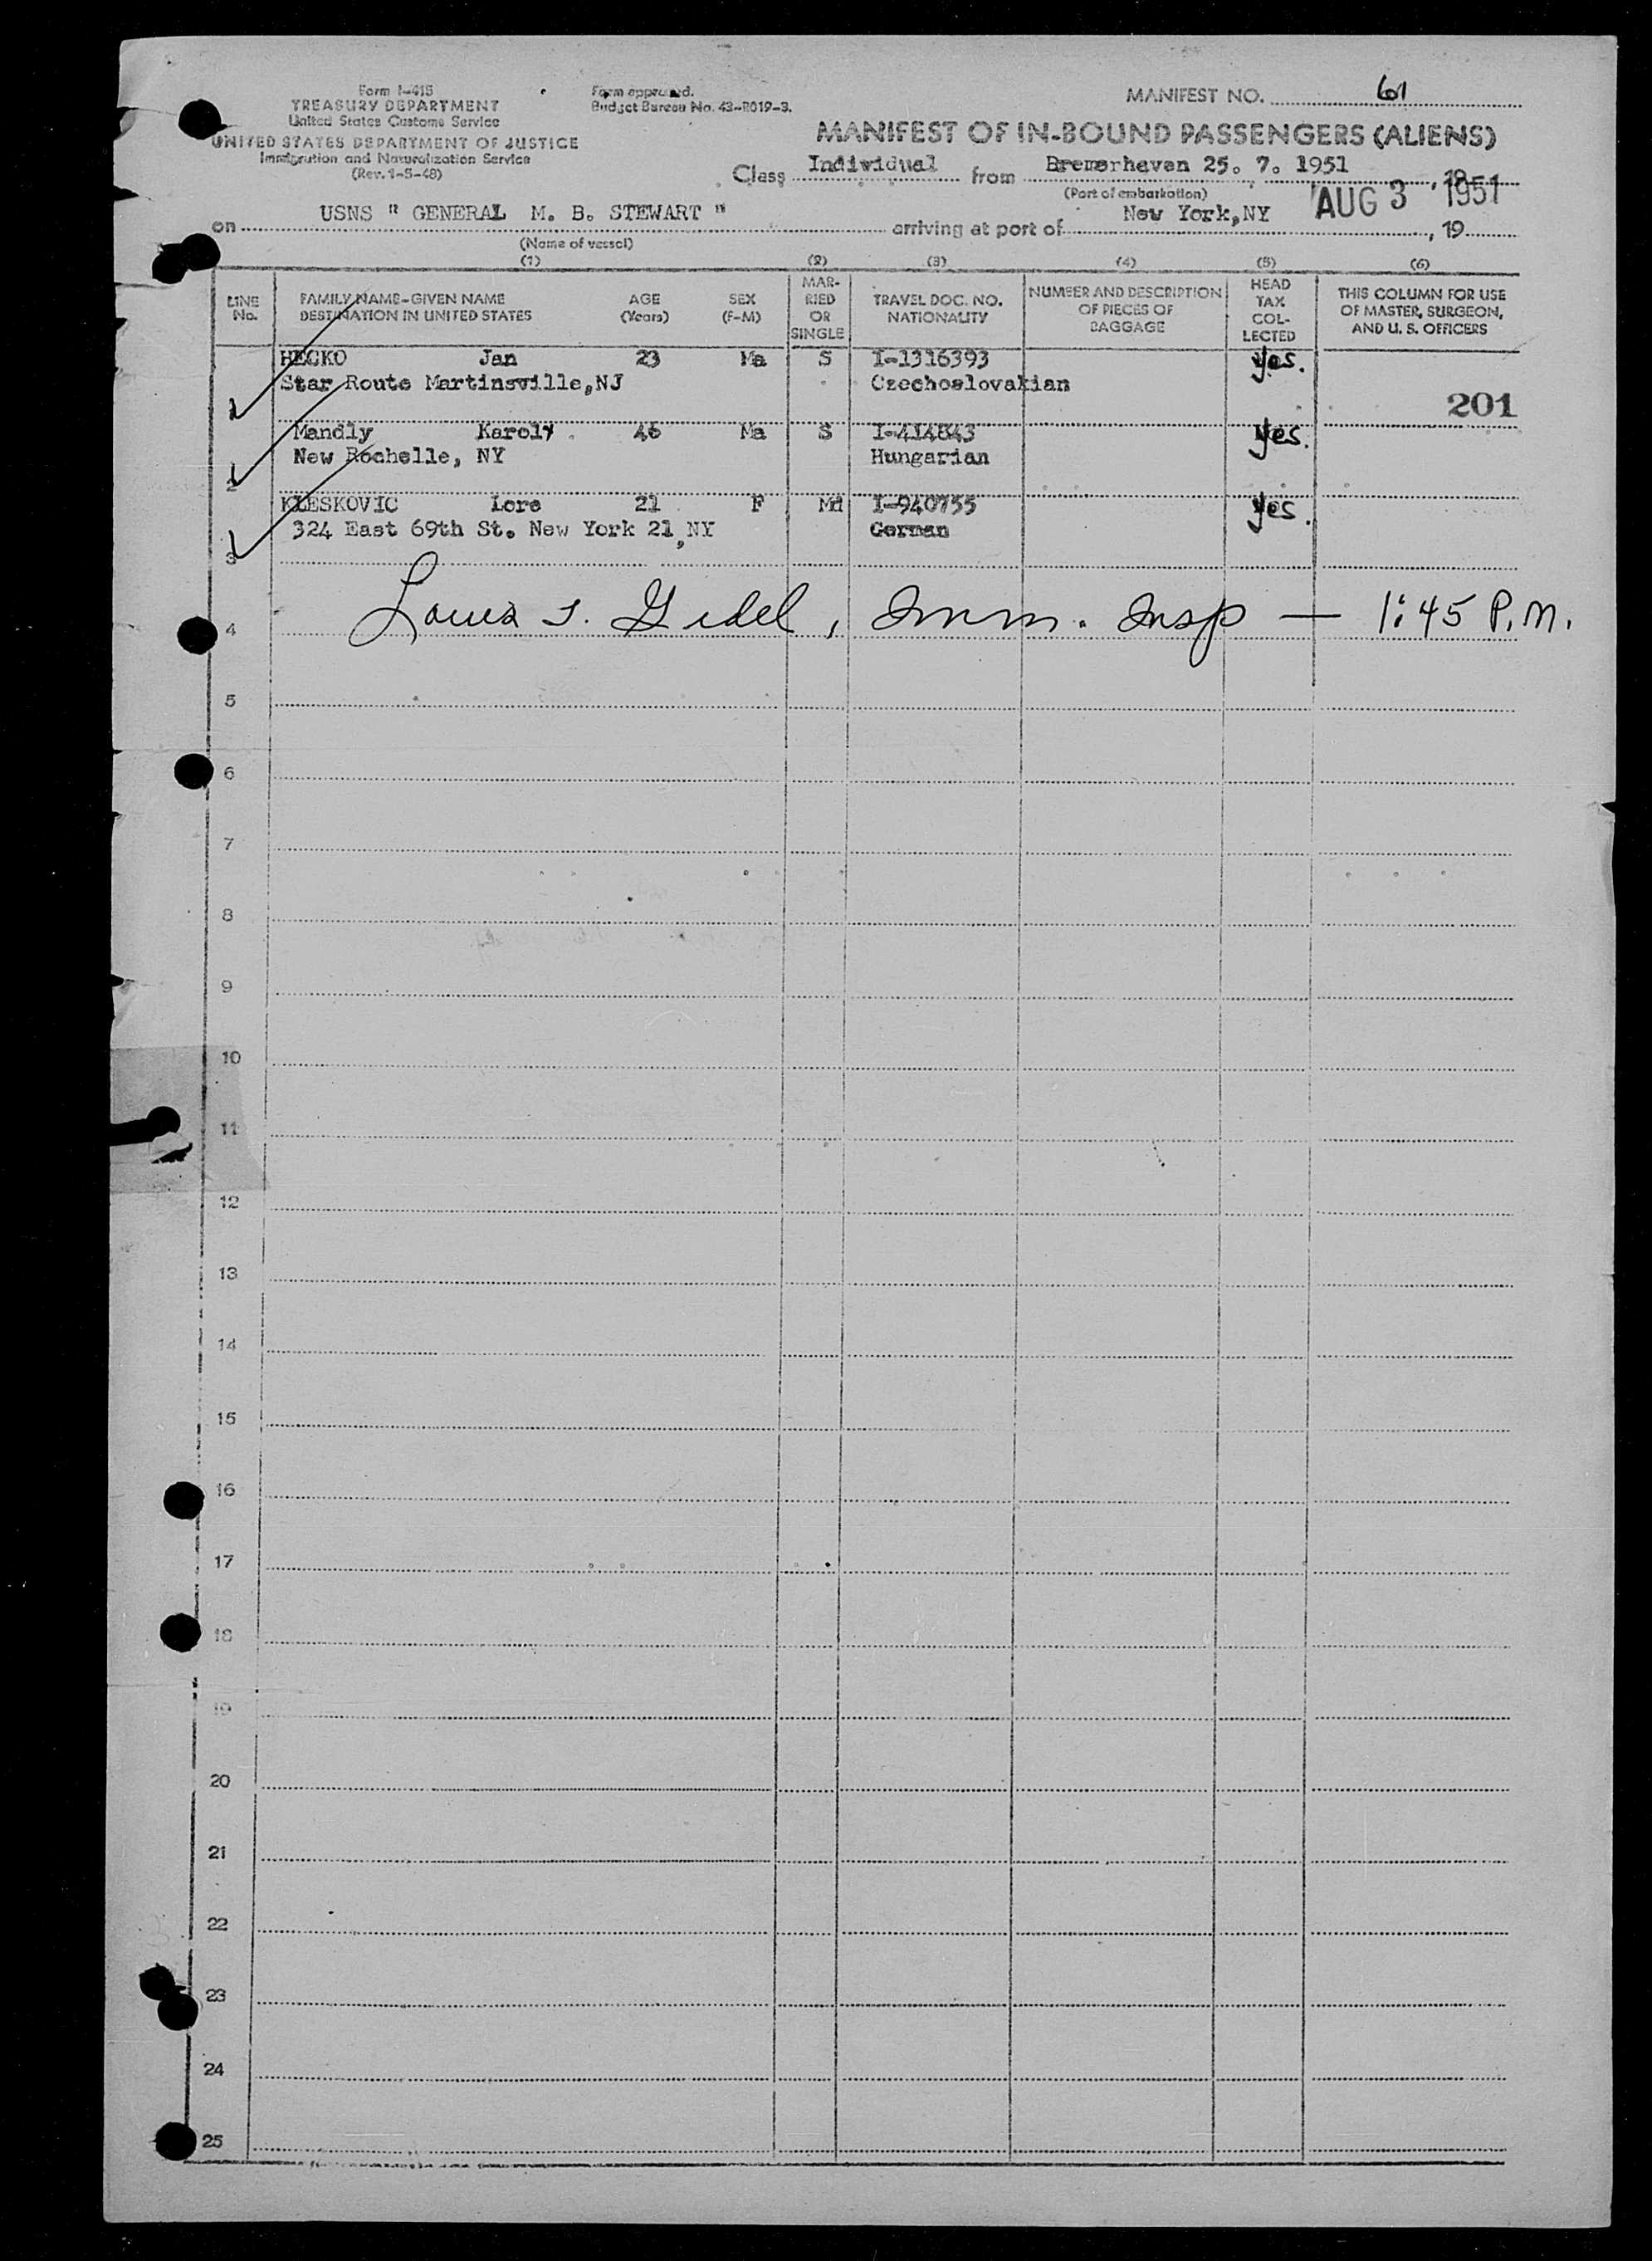 Form I-415
TREASURY DEPARTMENT
United States Customs Service
UNITED STATES DEPARTMENT OF JUSTICE
Immigration and Naturalization Service
(Rev. 1-5-48)
Form approved.
Budget Bureau No. 43-R019-3.
MANIFEST NO. 61
MANIFEST OF IN-BOUND PASSENGERS (ALIENS)
Class Individual from Bremerhaven 25. 7. 1951, 19
(Port of embarkation)
AUG 3 1951
on USNS " GENERAL M. B. STEWART " arriving at port of New York,NY, 19
(Name of vessel)
(1) (2) (3) (4) (5) (6)
LINE No.
FAMILY NAME-GIVEN NAME DESTINATION IN UNITED STATES
AGE (Years)
SEX (F-M)
MARRIED OR SINGLE
TRAVEL DOC. NO. NATIONALITY
NUMBER AND DESCRIPTION OF PIECES OF BAGGAGE
HEAD TAX COLLECTED
THIS COLUMN FOR USE OF MASTER, SURGEON, AND U. S. OFFICERS
HECKO Jan 23 Ma S I-1316393 yes.
Star Route Martinsville,NJ Czechoslovakian
1 201
Mandly Karoly 46 Ma S I-414843 yes.
New Rochelle, NY Hungarian
2
KLESKOVIC Lore 21 F Md I-940755 yes.
324 East 69th St. New York 21,NY German
3
4 Imm. Insp — 1:45 P.M.
5
6
7
8
9
10
11
12
13
14
15
16
17
18
19
20
21
22
23
24
25